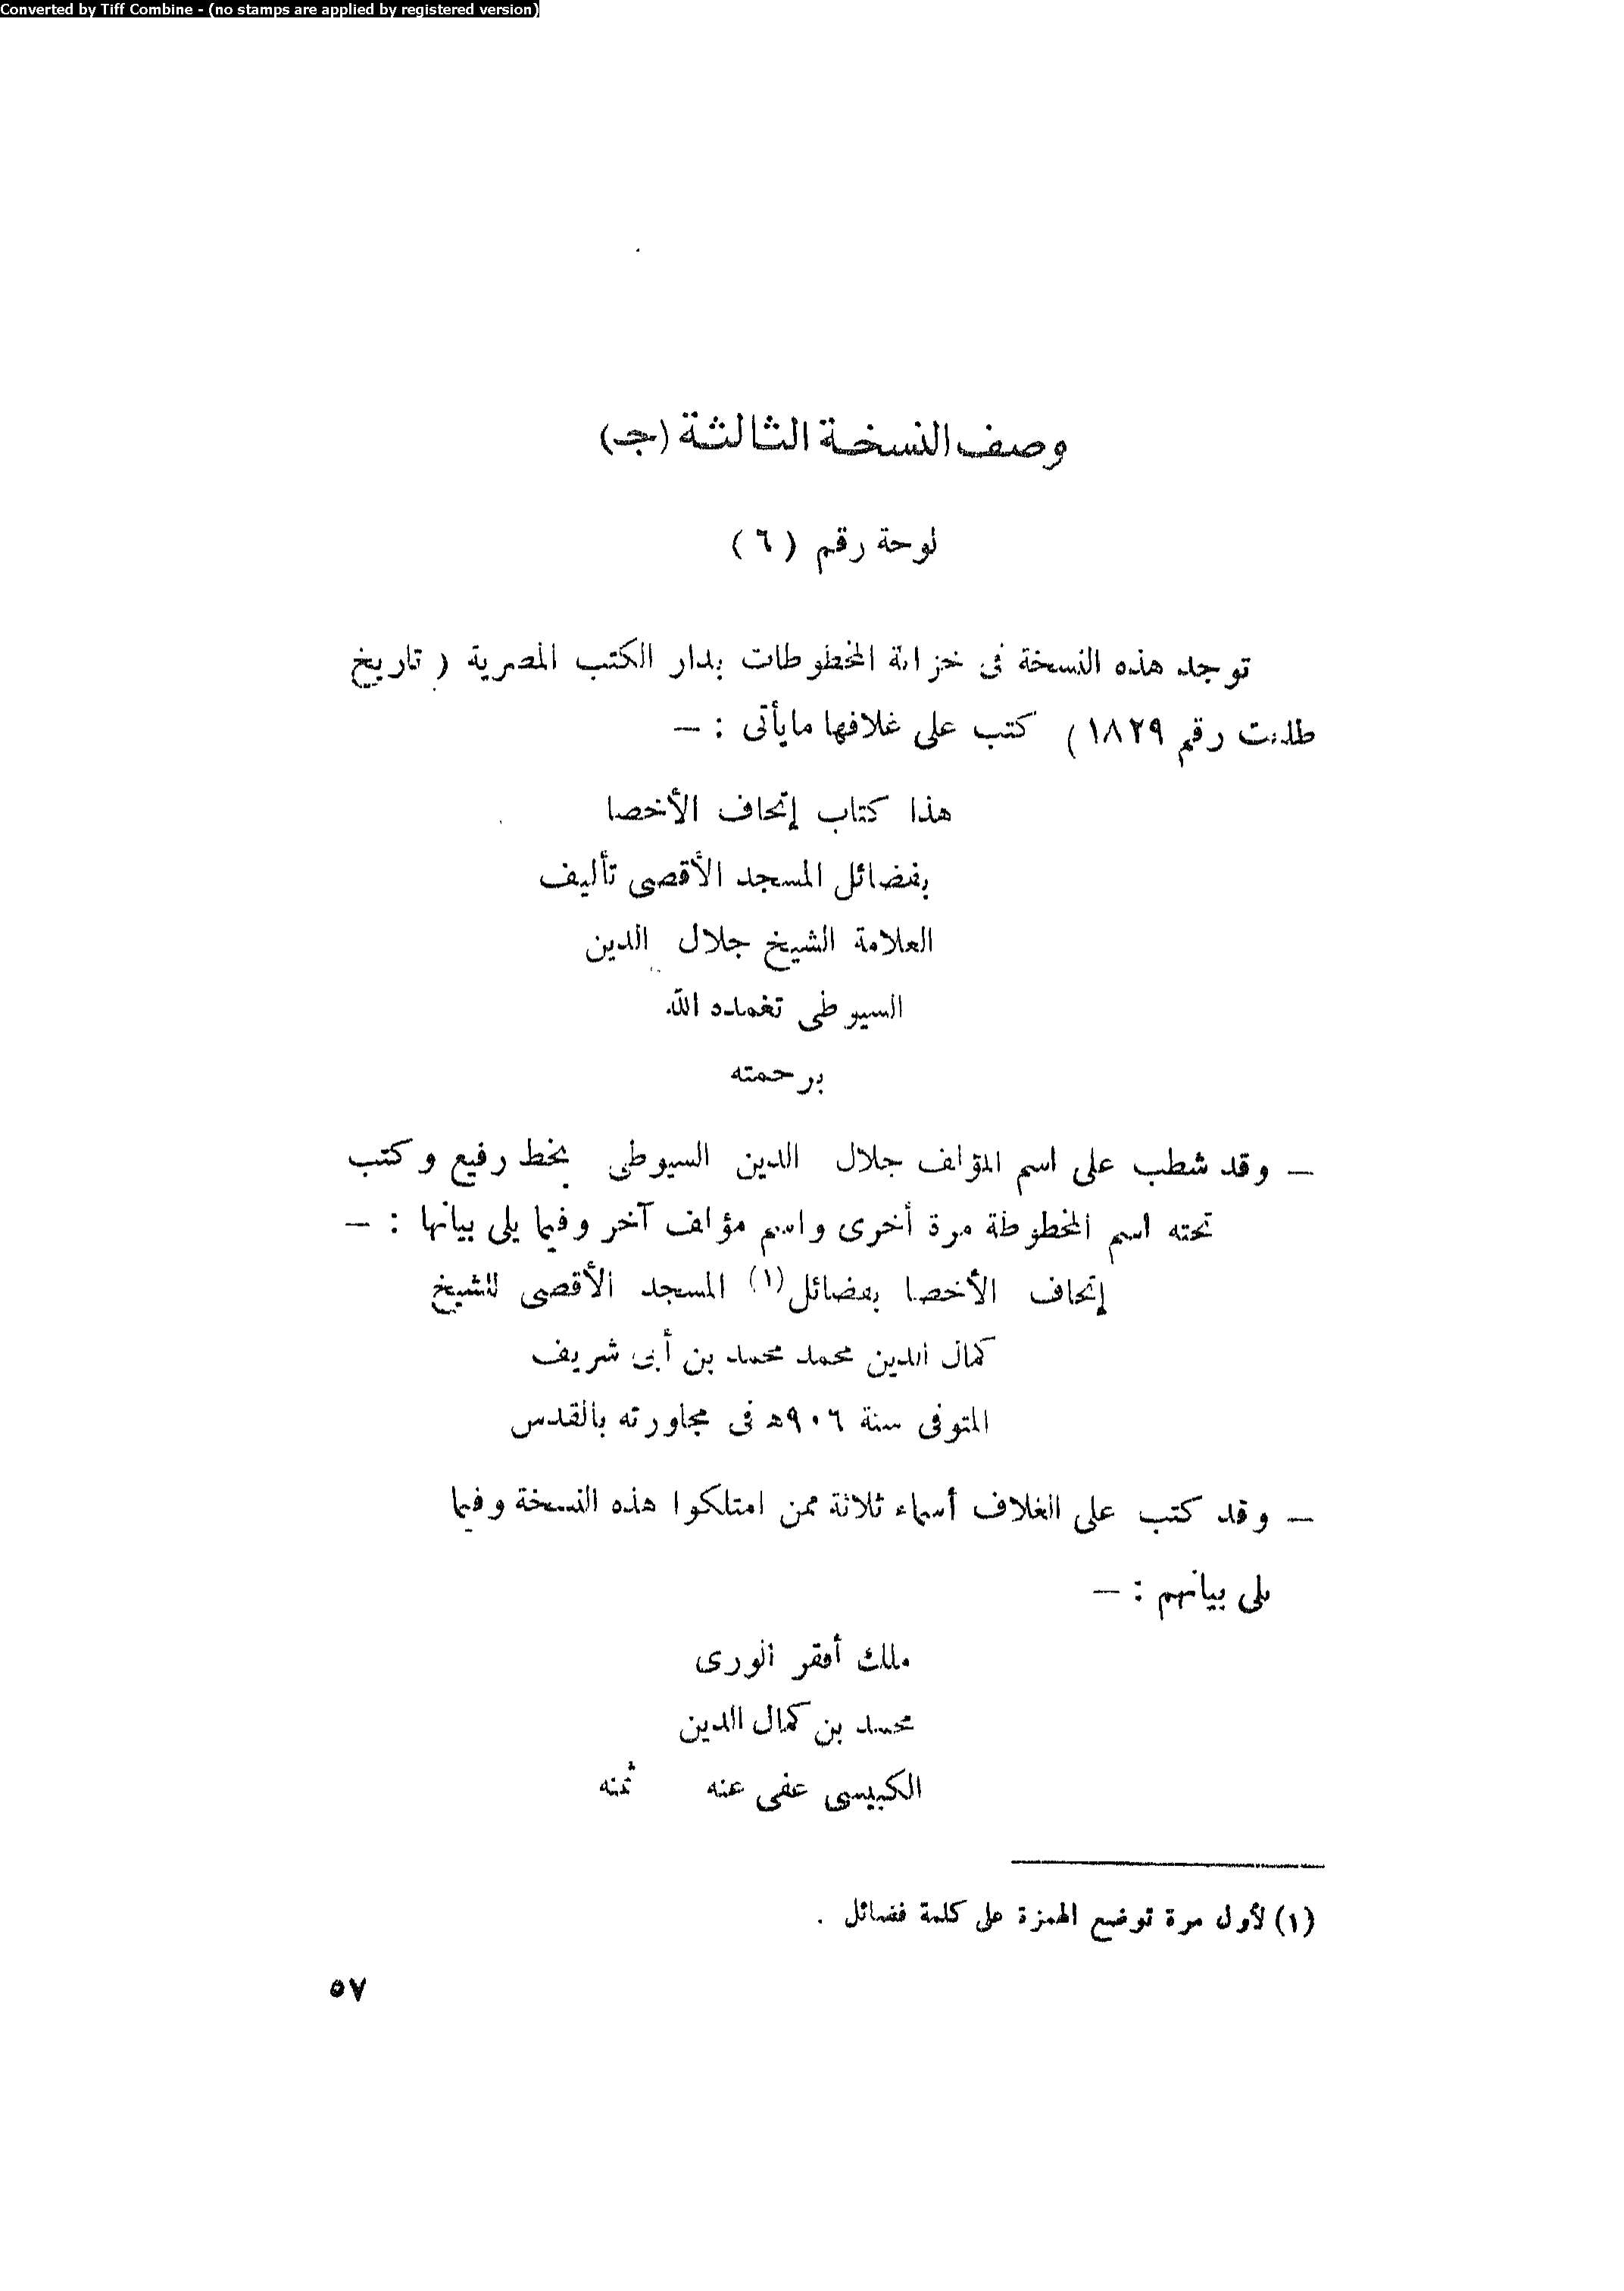 Converted by Tiff Combine - (no stamps are applied by registered version)
وصف النسخة الثالثة (جـ)
لوحة رقم ( ٦ )
توجد هذه النسخة فى خزانة المخطوطات بدار الكتب المصرية ( تاريخ
طلعت رقم ١٨٢٩ ) كتب على غلافها مايأتى : —
هذا كتاب إتحاف الأخصا
بفضائل المسجد الأقصى تأليف
العلامة الشيخ جلال الدين
السيوطى تغمده الله
برحمته
— وقد شطب على اسم المؤلف جلال الدين السيوطى بخط رفيع وكتب
تحته اسم المخطوطة مرة أخرى واسم مؤلف آخر وفيما يلى بيانها : —
إتحاف الأخصا بفضائل(١) المسجد الأقصى للشيخ
كمال الدين محمد محمد بن أبى شريف
المتوفى سنة ٩٠٦هـ فى مجاورته بالقدس
— وقد كتب على الغلاف أسماء ثلاثة ممن امتلكوا هذه النسخة وفيما
يلى بيانهم : —
ملك أفقر الورى
محمد بن كمال الدين
الكبيسى عفى عنه ثمنه
(١) لأول مرة توضع الهمزة على كلمة فضائل .
٥٧